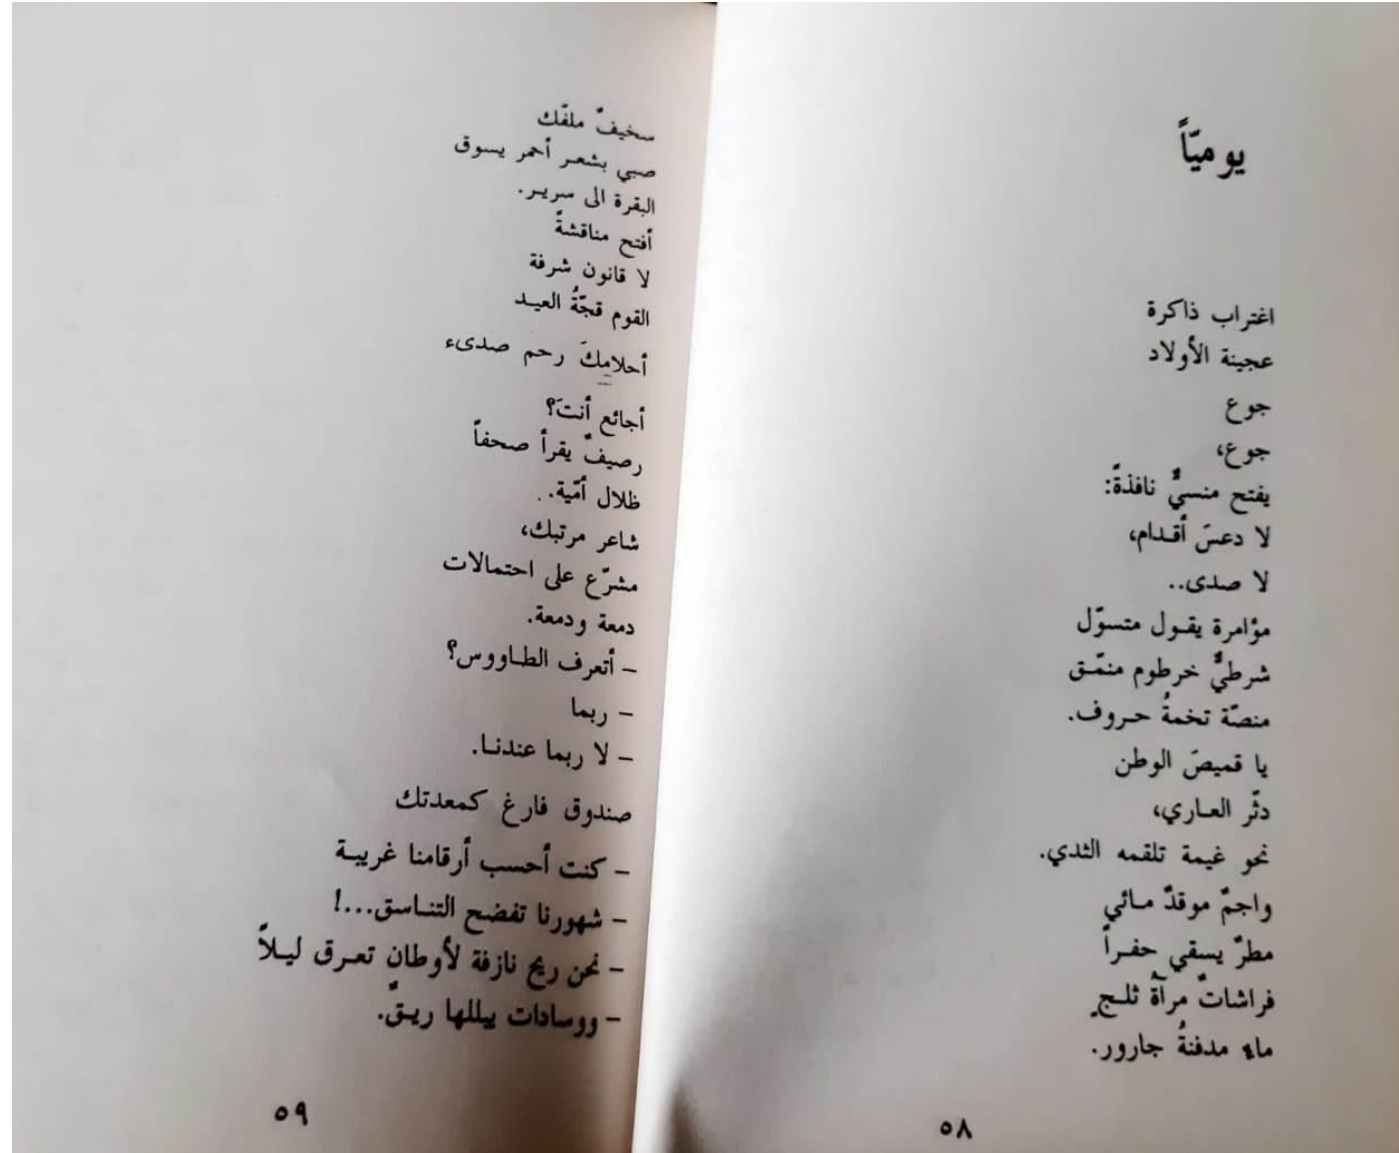 يوميّاً
اغتراب ذاكرة
عجينة الأولاد
جوع
جوع،
يفتح منسيٌّ نافذةً:
لا دعسَ أقدام،
لا صدى..
مؤامرة يقول متسوّل
شرطيٌّ خرطوم منمّق
منصّة تخمةُ حروف.
يا قميصَ الوطن
دثّر العاري،
نحو غيمة تلقمه الثدي.
واجمٌ موقدٌ مائي
مطرٌ يسقي حفراً
فراشاتٌ مرآة ثلجٍ
ماء مدفنةُ جارور.
٥٨
سخيفٌ ملفّك
صبي بشعر أحمر يسوق
البقرة الى سرير.
أفتح مناقشةً
لا قانون شرفة
القوم قجّةُ العيد
أحلامِكَ رحم صدىء
أجائع أنتَ؟
رصيفٌ يقرأ صحفاً
ظلال أمّية.
شاعر مرتبك،
مشرّع على احتمالات
دمعة ودمعة.
– أتعرف الطاووس؟
– ربما
– لا ربما عندنا.
صندوق فارغ كمعدتك
– كنت أحسب أرقامنا غريبة
– شهورنا تفضح التناسق...!
– نحن ريح نازفة لأوطانٍ تعرق ليلاً
– ووسادات يبللها ريقٌ.
٥٩